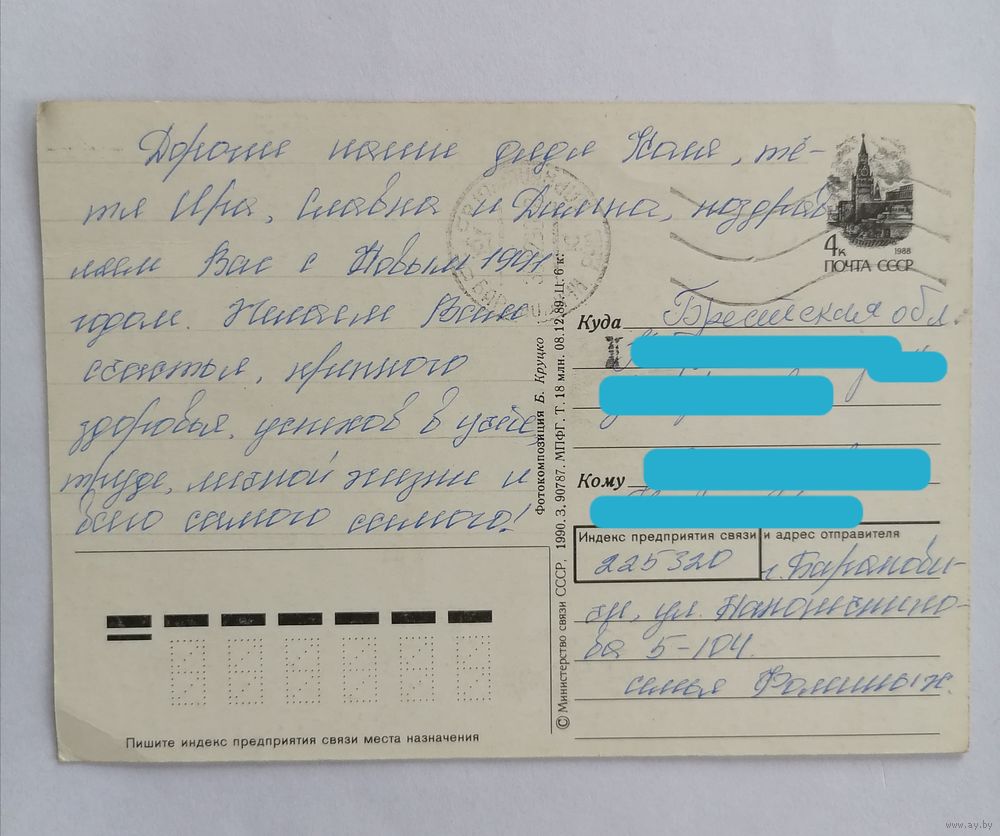 Дорогие наши дядя Коля, тё-
тя Ира, Славик и Димка, поздрав
ляем Вас с Новым 1991
годом. Желаем Вам
счастья, крепкого
здоровья, успехов в учёбе,
труде, личной жизни и
всего самого самого!
4к
1988
ПОЧТА СССР
Куда Брестская обл.
Кому
Индекс предприятия связи и адрес отправителя
225320 г. Баранови-
чи, ул.
5-104.
семья Фоминых.
Пишите индекс предприятия связи места назначения
© Министерство связи СССР, 1990. З. 90787. МПФГ. Т. 18 млн. 08.12.89. Ц. 6 к.
Фотокомпозиция Б. Круцко
www.ay.by